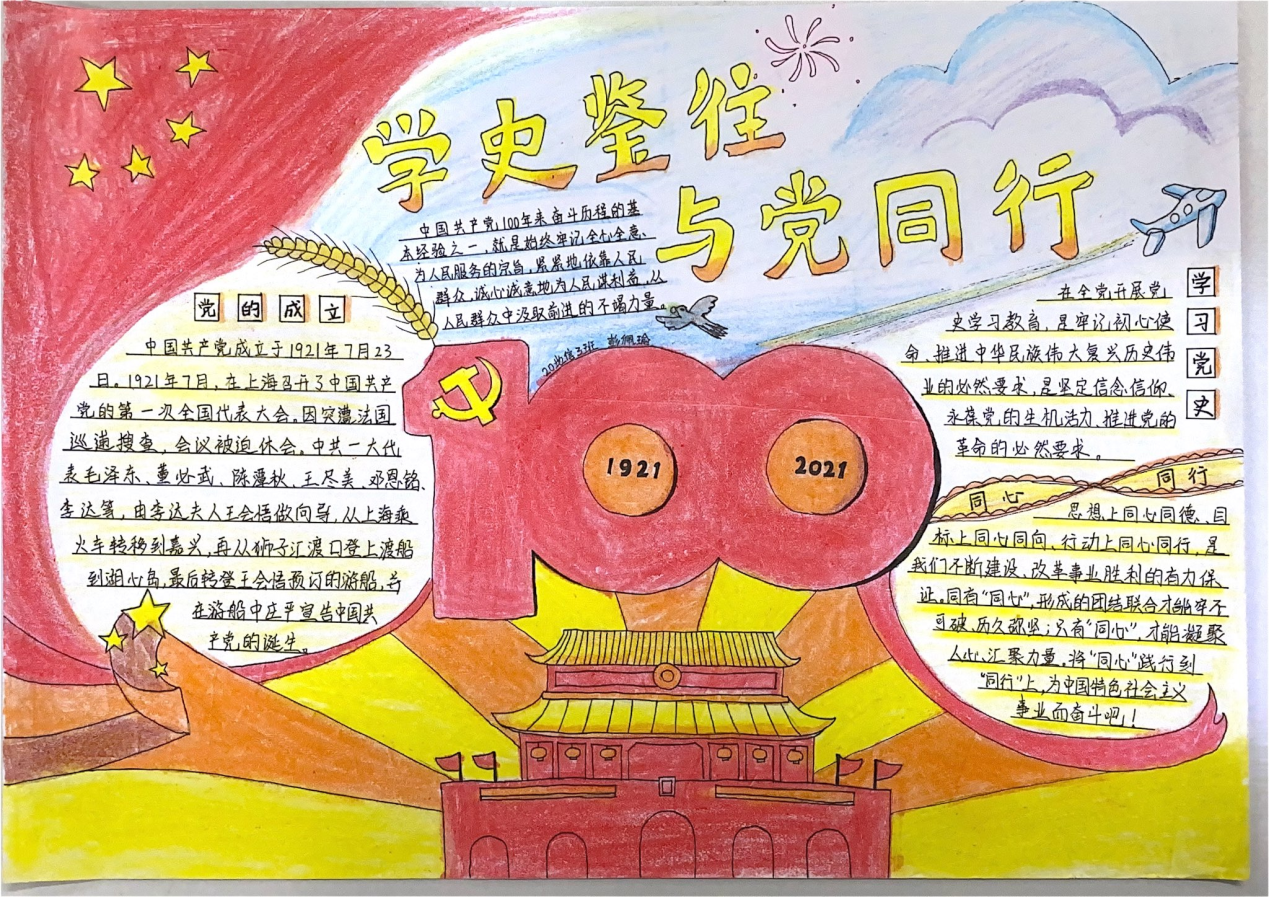 学史鉴往
与党同行
中国共产党100年来奋斗历程的基
本经验之一，就是始终牢记全心全意、
为人民服务的宗旨，紧紧地依靠人民
群众，诚心诚意地为人民谋利益，从
人民群众中汲取前进的不竭力量。
党的成立
中国共产党成立于1921年7月23
日。1921年7月，在上海召开了中国共产
党的第一次全国代表大会。因突遭法国
巡递搜查，会议被迫休会。中共一大代
表毛泽东、董必武、陈潭秋、王尽美、邓恩铭、
李达等，由李达夫人王会悟做向导，从上海乘
火车转移到嘉兴，再从狮子汇渡口登上渡船
到湖心岛，最后转登王会悟预订的游船，并
在游船中庄严宣告中国共
产党的诞生。
100
1921
2021
学习党史
在全党开展党
史学习教育，是牢记初心使
命、推进中华民族伟大复兴历史伟
业的必然要求，是坚定信念信仰、
永葆党的生机活力，推进党的
革命的必然要求。
同心
同行
思想上同心同德、目
标上同心同向、行动上同心同行，是
我们不断建设、改革事业胜利的有力保
证。同有“同心”，形成的团结联合才能牢不
可破、历久弥坚；只有“同心”，才能凝聚
人心、汇聚力量。将“同心”践行到
“同行”上，为中国特色社会主义
事业而奋斗吧！